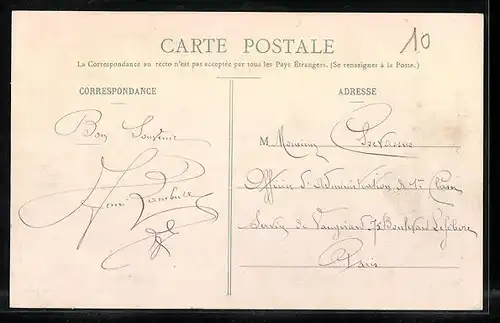 CARTE POSTALE
10
La Correspondance au recto n'est pas acceptée par tous les Pays Étrangers. (Se renseigner à la Poste.)
CORRESPONDANCE
Bon Souvenir
Henri
ADRESSE
M Monsieur
Officier d'Administration de 1re Classe
Service de 75 Boulevard Lefebvre
Paris